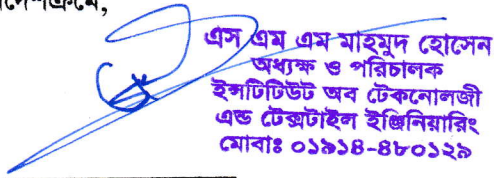 দেশক্রমে,
এস এম এম মাহমুদ হোসেন
অধ্যক্ষ ও পরিচালক
ইন্সটিটিউট অব টেকনোলজী
এন্ড টেক্সটাইল ইঞ্জিনিয়ারিং
মোবাঃ ০১৯১৪-৪৮০১২৯